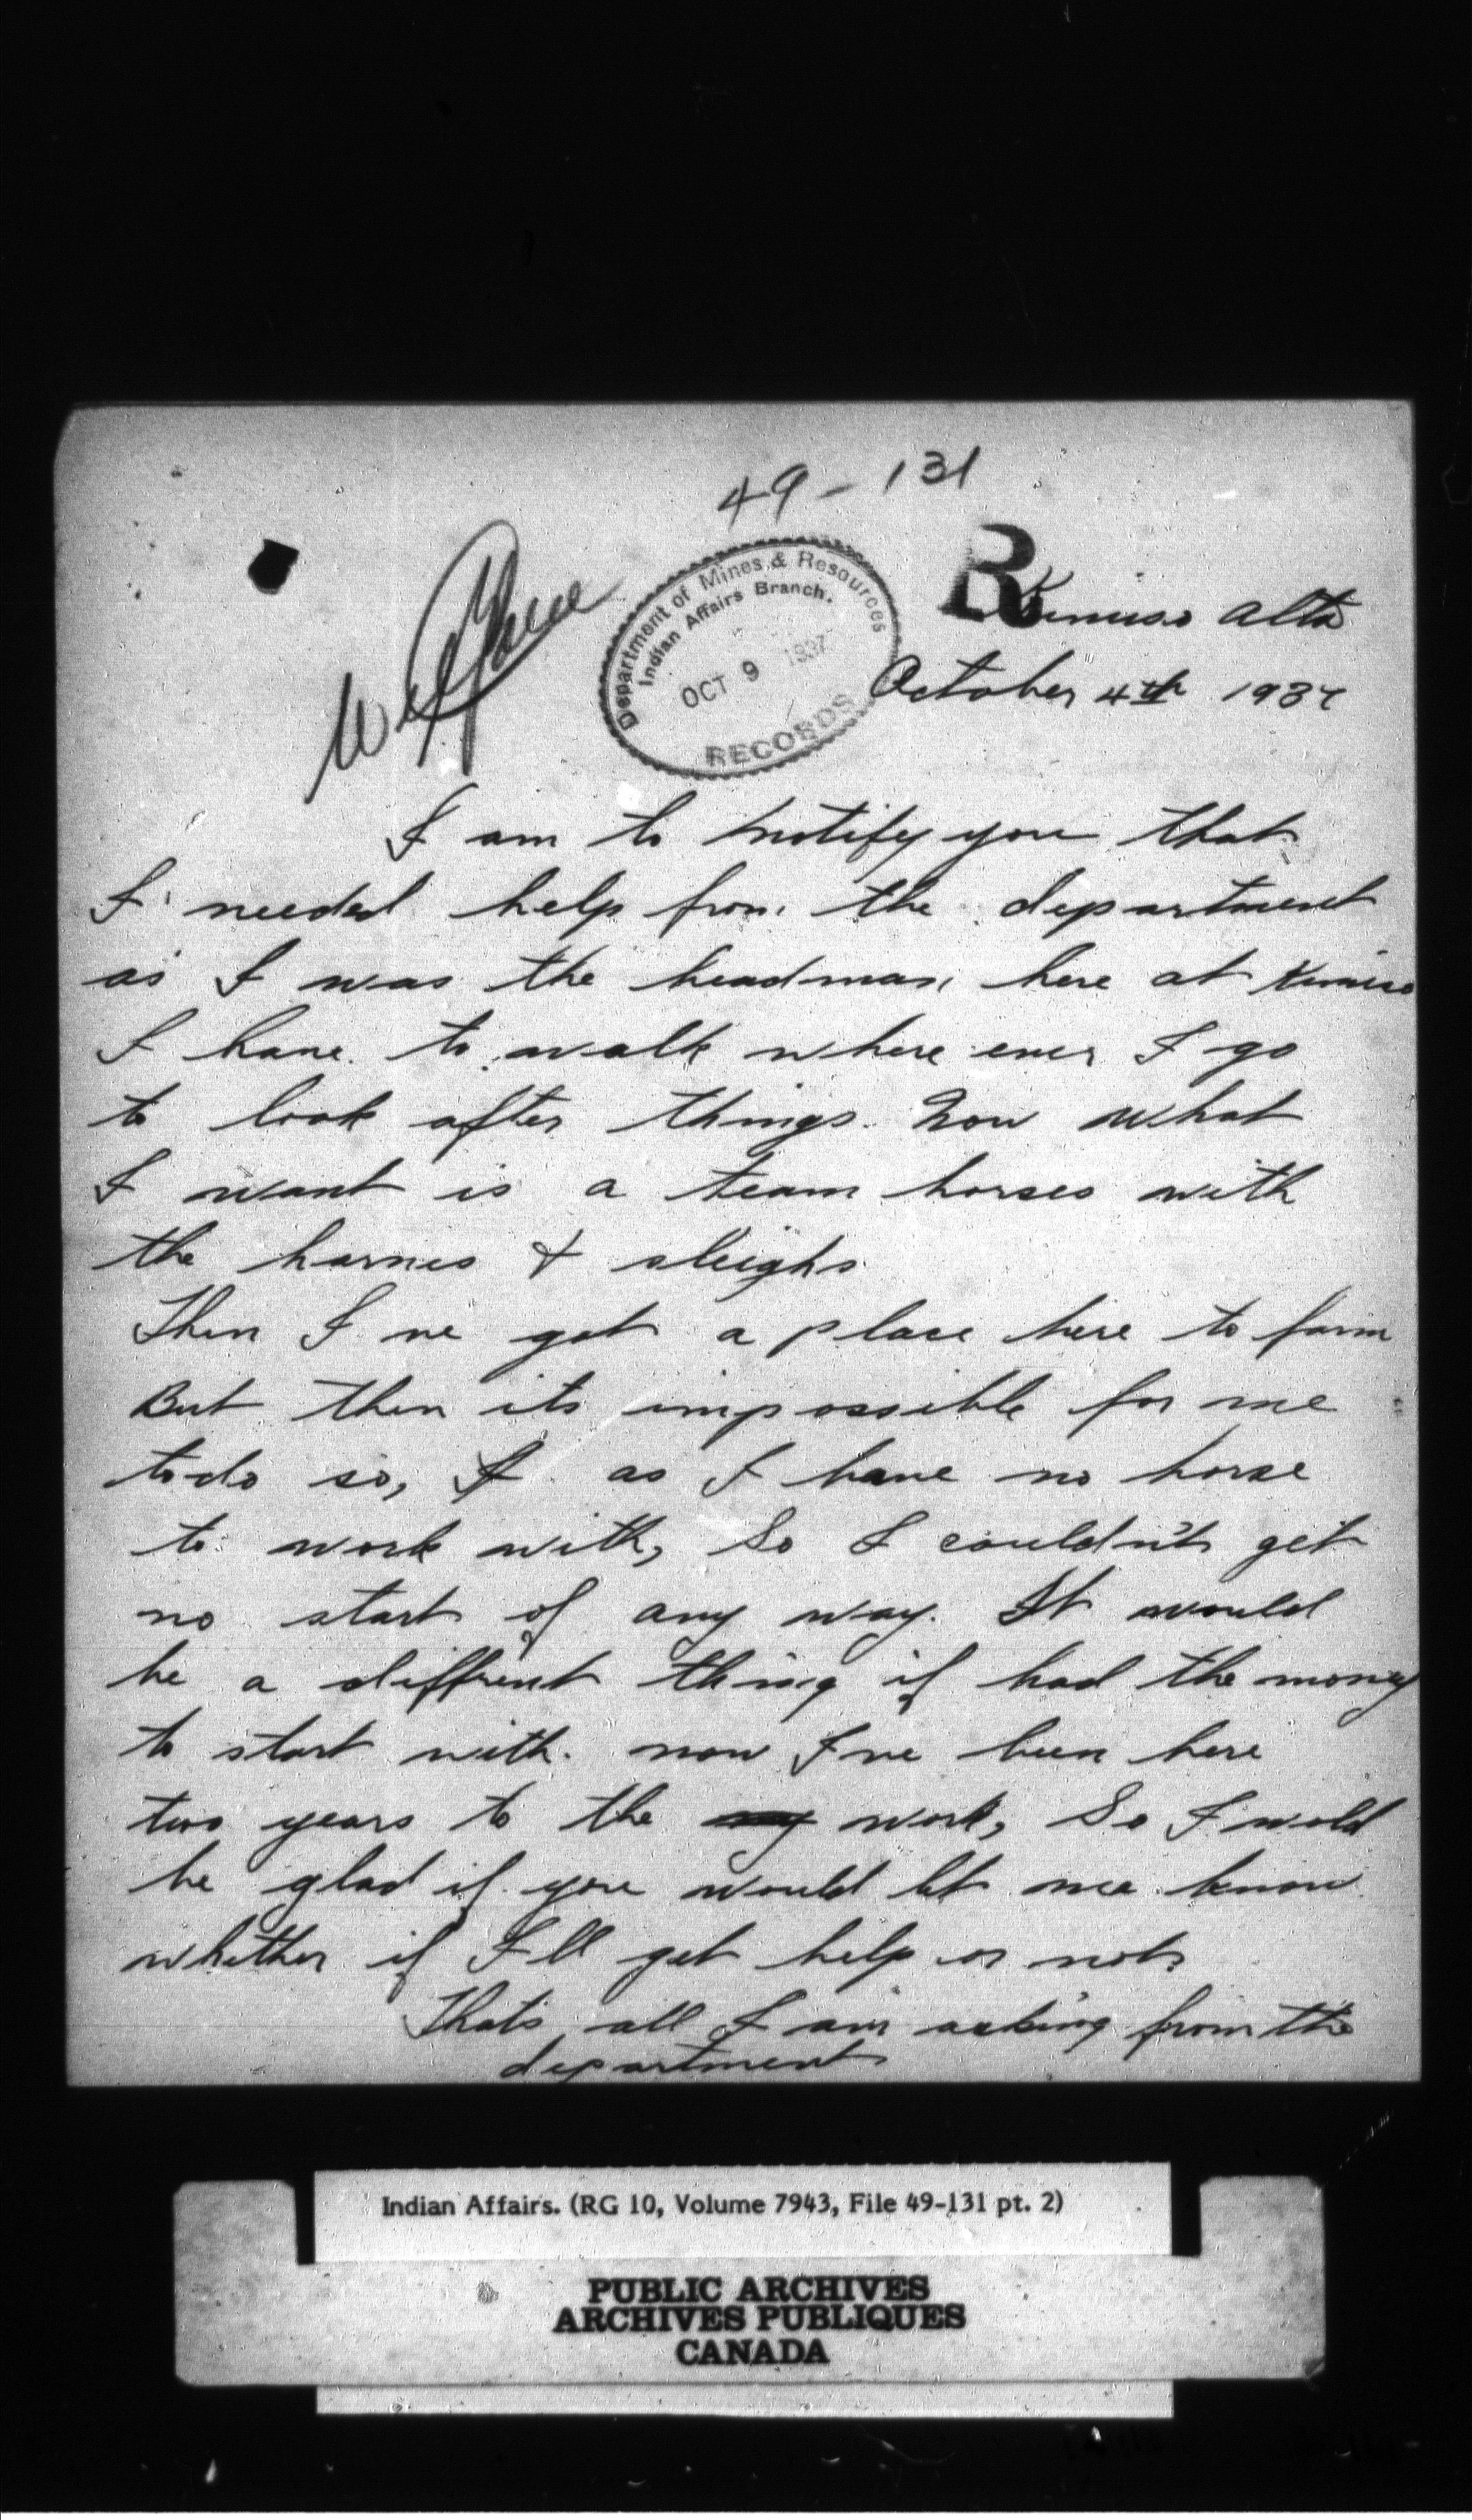 49-131
R
Department of Mines & Resources
Indian Affairs Branch.
OCT 9 1937
RECORDS
Kinuso Alta
October 4th 1937
I am to notify you that
I needed help from the department
as I was the headman here at Kinuso
I have to walk where ever I go
to look after things. Now what
I want is a team horses with
the harnes & sleighs
Then I ve got a place here to farm
But then its impossible for me
todo so, I as I have no horse
to work with, So I couldn't get
no start of any way. It would
be a diffrent thing if had the money
to start with. now I've been here
two years to the work, So I wold
be glad if you would let me know
whether if I'll get help or not.
Thats all I am asking from the
department
Indian Affairs. (RG 10, Volume 7943, File 49-131 pt. 2)
PUBLIC ARCHIVES
ARCHIVES PUBLIQUES
CANADA